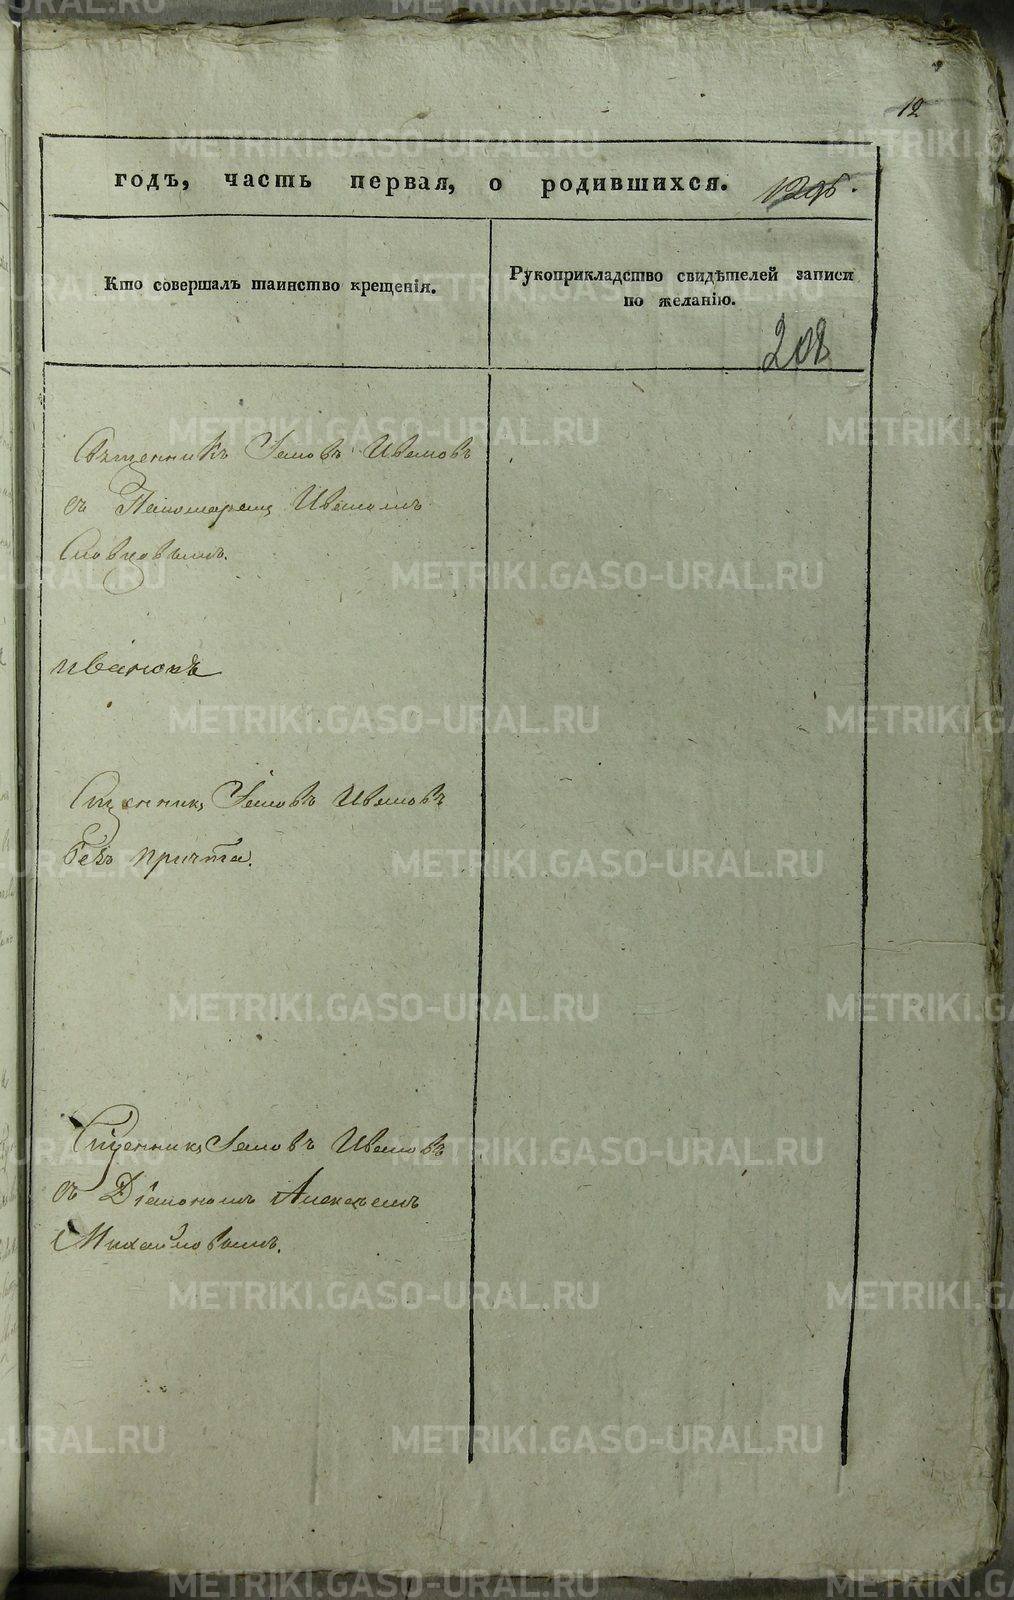 12
годъ, часть первая, о родившихся.
Кто совершалъ таинство крещенія.
Рукоприкладство свидѣтелей записи
по желанію.
208
Священникъ Іаковъ Ивановъ
съ Пономаремъ Иваномъ
Сщенникъ Іаковъ Ивановъ
безъ причта.
Сщенникъ Іаковъ Ивановъ
съ Діакономъ Алексѣемъ
Михайловымъ.
METRIKI.GASO-URAL.RU